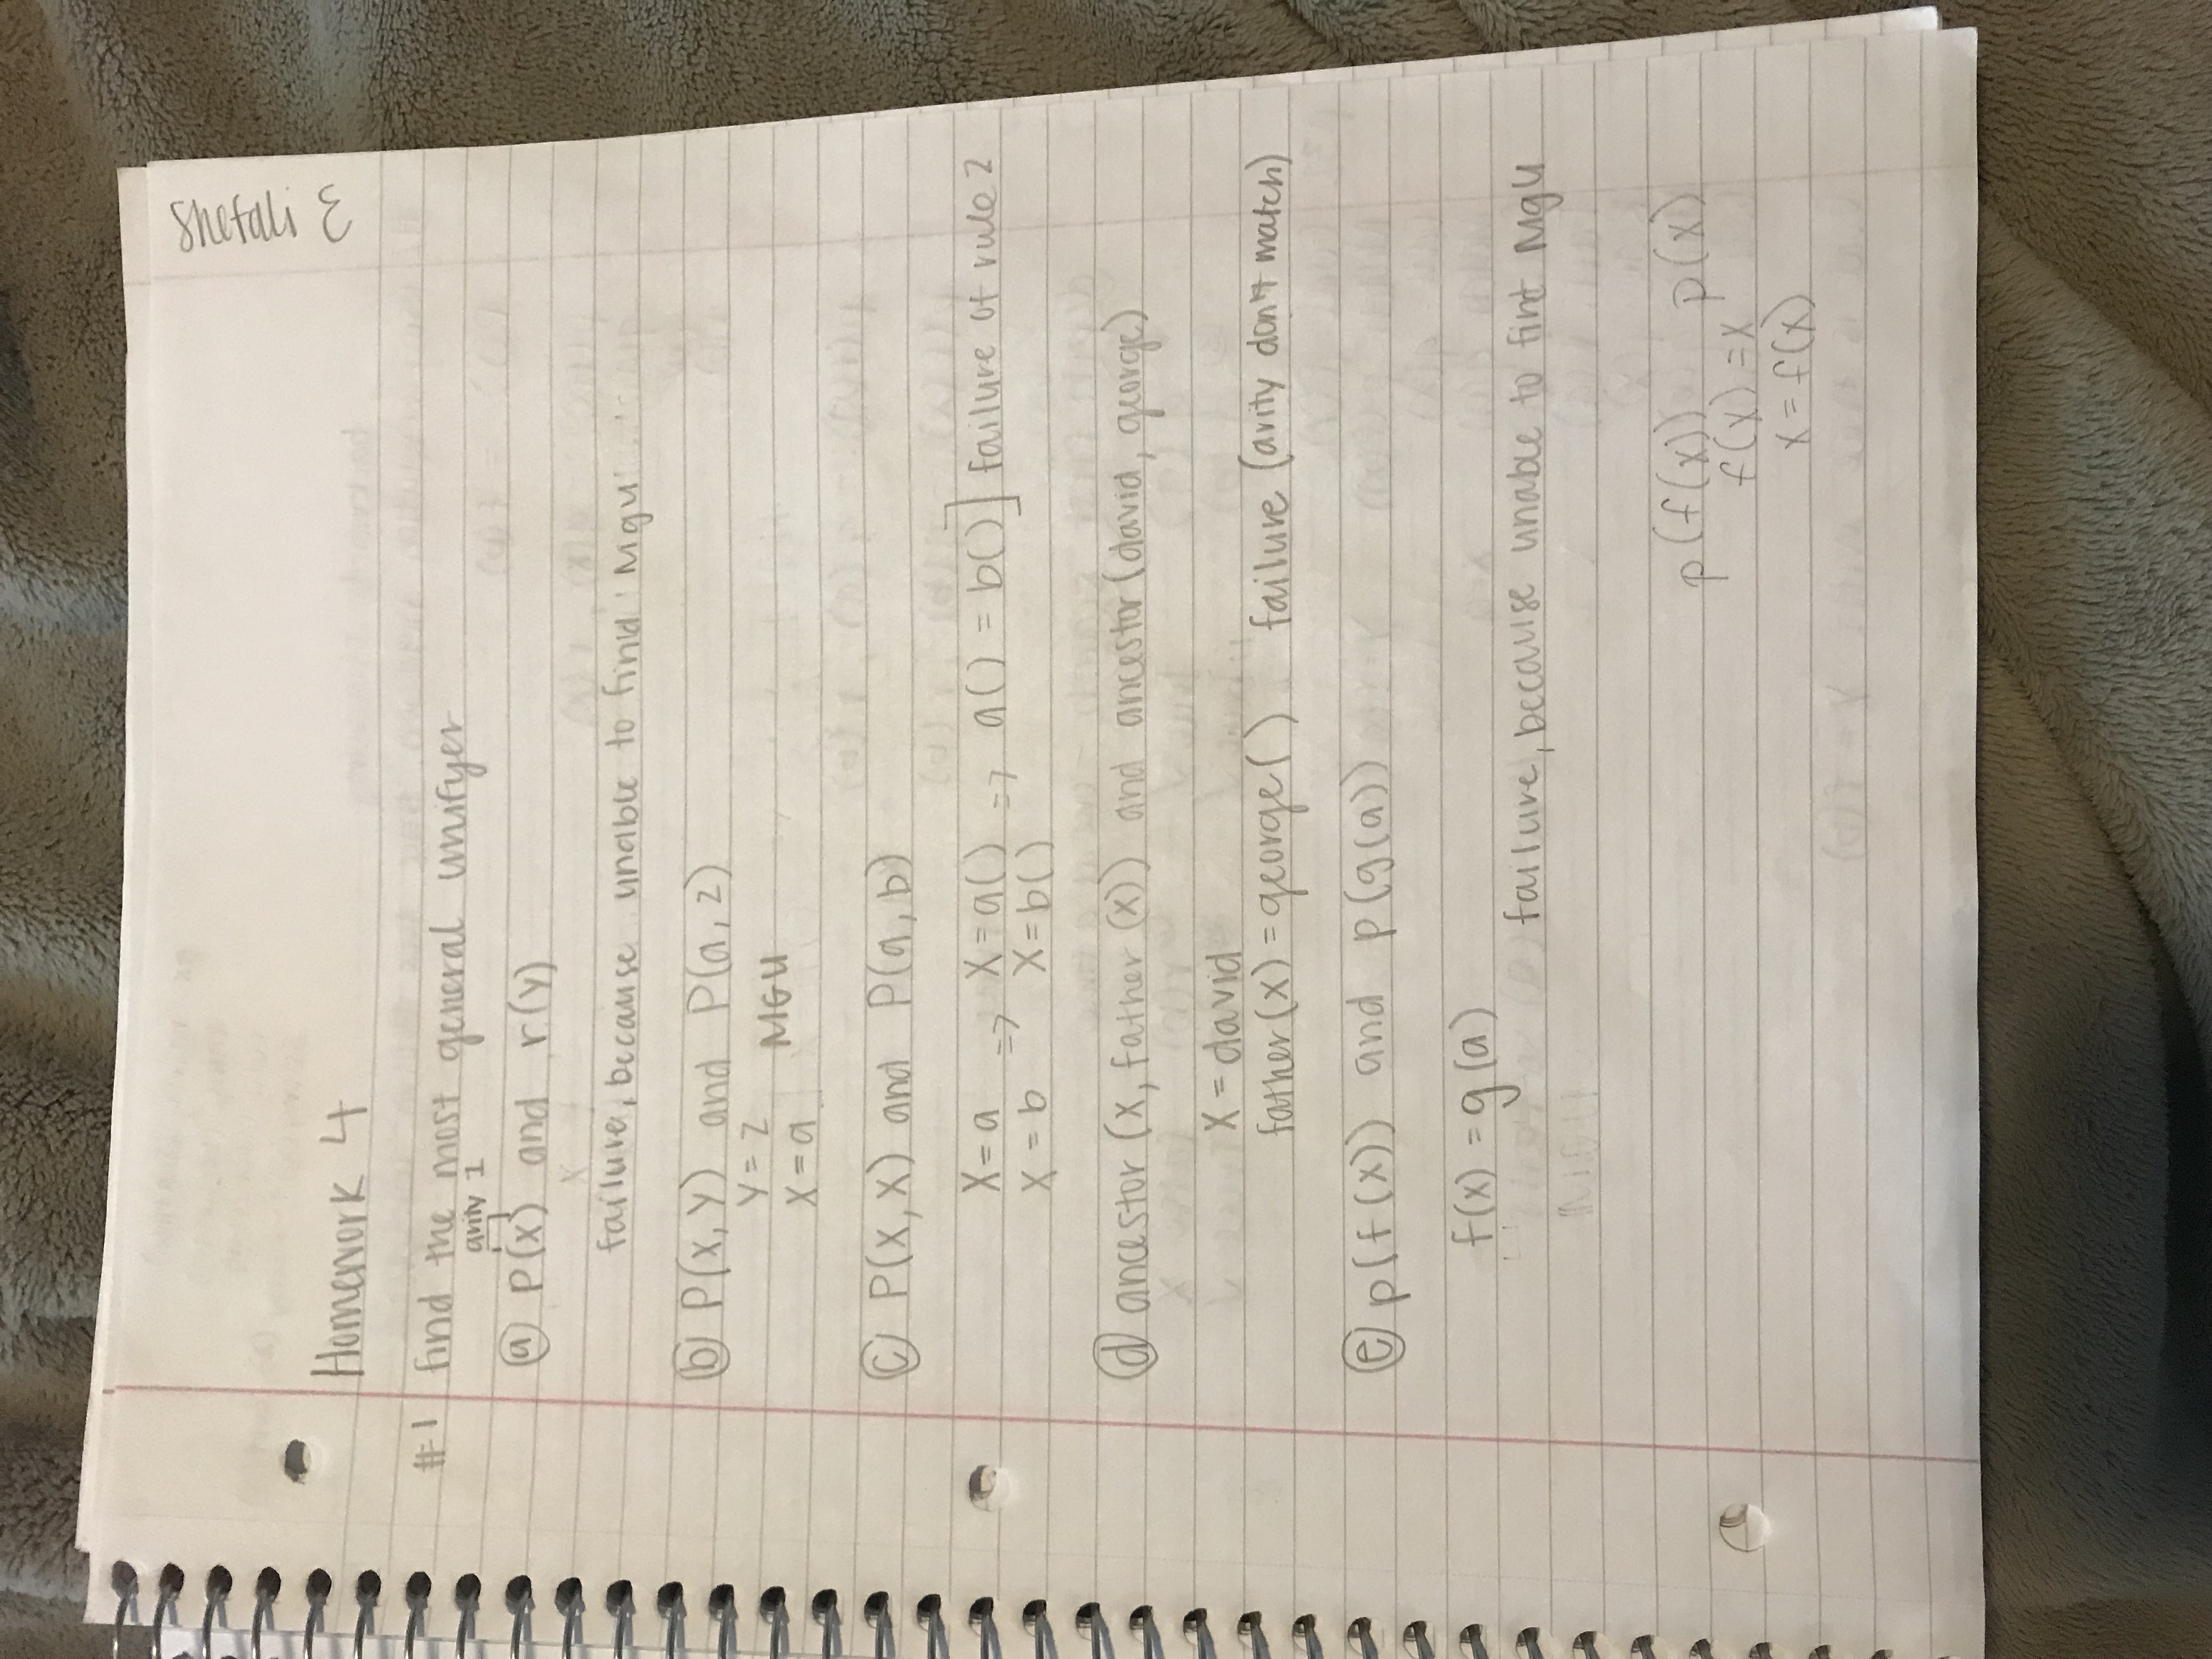 Shefali E
Homework 4
#1 find the most general unifyer
arity 1
(a) P(x) and r(y)
failure, because unable to find Mgu
(b) P(x, y) and P(a, z)
y = z
MGU
x = a
(c) P(x, x) and P(a, b)
x = a => x = a() => a() = b()] failure of rule 2
x = b x = b()
(d) ancestor (x, father (x)) and ancestor (david, george)
x = david
father (x) = george() failure (arity don't match)
(e) p(f(x)) and p(g(a))
f(x) = g(a)
failure, because unable to fint Mgu
p(f(x)) p(x)
f(x) = x
x = f(x)